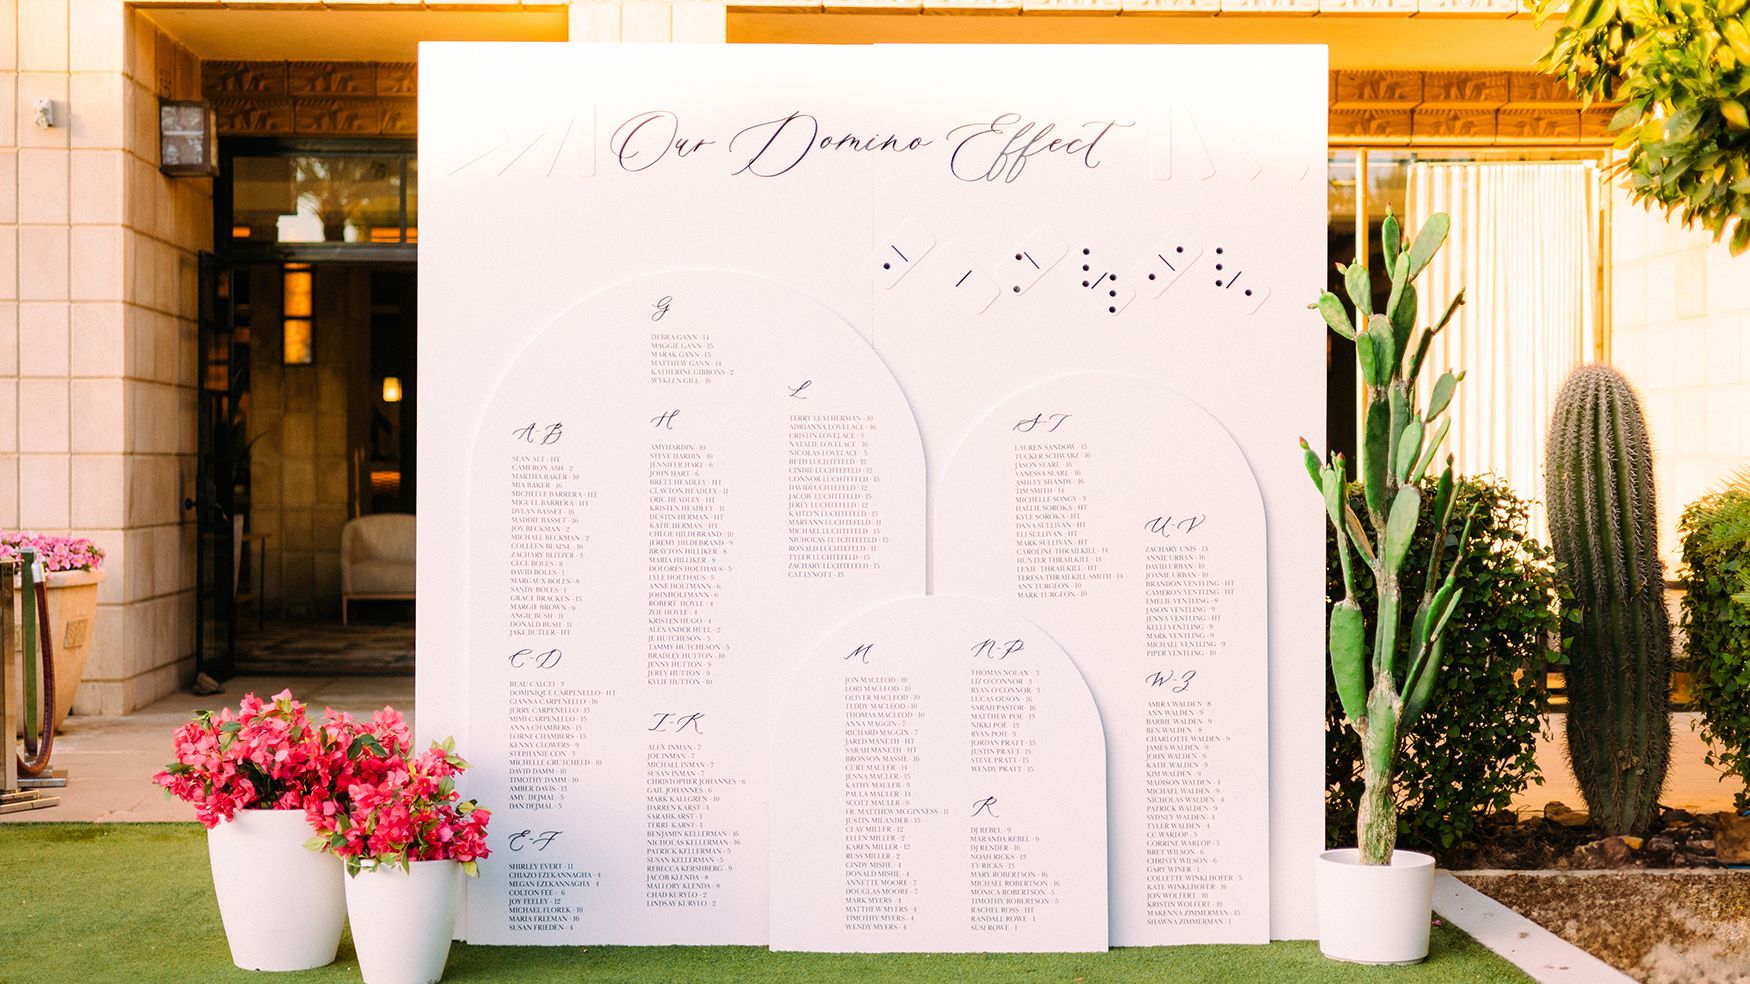 Our Domino Effect
G
DEBRA GANN - 14
MAGGIE GANN - 15
MARAK GANN - 15
MATTHEW GANN - 14
KATHERINE GIBBONS - 2
WYKEEN GILL - 16
A-B
SEAN ALT - HT
CAMERON ASH - 2
MARTHA BAKER - 10
MIA BAKER - 16
MICHELLE BARRERA - HT
MIGUEL BARRERA - HT
DYLAN BASSET - 16
MADDIE BASSET - 16
JOY BECKMAN - 2
MICHAEL BECKMAN - 2
COLLEEN BLAINE - 16
ZACHARY BLITZER - 3
CECE BOLES - 8
DAVID BOLES - 1
MARGAUX BOLES - 8
SANDY BOLES - 1
GRACE BRACKEN - 15
MARGIE BROWN - 9
ANGIE BUSH - 11
DONALD BUSH - 11
JAKE BUTLER - HT
C-D
BEAU CALCEI - 3
DOMINIQUE CARPENELLO - HT
GIANNA CARPENELLO - 16
JERRY CARPENELLO - 15
MIMI CARPENELLO - 15
ANNA CHAMBERS - 15
LORNE CHAMBERS - 15
KENNY CLOWERS - 9
STEPHANIE CON - 3
MICHELLE CRUTCHELD - 10
DAVID DAMM - 10
TIMOTHY DAMM - 10
AMBER DAVIS - 13
AMY DEJMAL - 5
DAN DEJMAL - 5
E-F
SHIRLEY EVERT - 11
CHIAZO EZEKANNAGHA - 4
MEGAN EZEKANNAGHA - 4
COLTON FEE - 6
JOY FEELEY - 12
MICHAEL FLOREK - 10
MARIA FREEMAN - 16
SUSAN FRIEDEN - 4
H
AMYHARDIN - 10
STEVE HARDIN - 10
JENNIFER HART - 6
JOHN HART - 6
BRETT HEADLEY - HT
CLAYTON HEADLEY - 11
ERIC HEADLEY - HT
KRISTEN HEADLEY - 11
DUSTIN HERMAN - HT
KATIE HERMAN - HT
CHLOE HILDEBRAND - 10
JEREMY HILDEBRAND - 9
BRAYTON HILLIKER - 8
MARIA HILLIKER - 8
DOLORES HOLTHAUS - 5
LYLE HOLTHAUS - 5
ANNE HOLTMANN - 6
JOHNHOLTMANN - 6
ROBERT HOYLE - 4
ZOE HOYLE - 4
KRISTEN HUGO - 4
ALEXANDER HULL - 2
JE HUTCHESON - 5
TAMMY HUTCHESON - 5
BRADLEY HUTTON - 10
JENNY HUTTON - 9
JEREY HUTTON - 9
KYLIE HUTTON - 10
I-K
ALEX INMAN - 7
JOE INMAN - 7
MICHAEL INMAN - 7
SUSAN INMAN - 7
CHRISTOPHER JOHANNES - 6
GAIL JOHANNES - 6
MARK KALLGREN - 10
DARREN KARST - 1
SARAHKARST - 1
TERRI KARST - 1
BENJAMIN KELLERMAN - 16
NICHOLAS KELLERMAN - 16
PATRICK KELLERMAN - 5
SUSAN KELLERMAN - 5
REBECCA KERSHBERG - 7
JACOB KLENDA - 8
MALLORY KLENDA - 8
CHAD KURYLO - 2
LINDSAY KURYLO - 2
L
TERRY LEATHERMAN - 10
ADRIANNA LOVELACE - 16
CRISTIN LOVELACE - 5
NATALIE LOVELACE - 16
NICOLAS LOVELACE - 5
BETH LUCHTEFELD - 12
CINDIE LUCHTEFELD - 12
CONNOR LUCHTEFELD - 15
DAVIDLUCHTEFELD - 12
JACOB LUCHTEFELD - 15
JEREY LUCHTEFELD - 12
KAITLYN LUCHTEFELD - 15
MARYANN LUCHTEFELD - 11
MICHAEL LUCHTEFELD - 15
NICHOLAS LUTCHTEFELD - 15
RONALD LUCHTEFELD - 11
TYLER LUCHTEFELD - 15
ZACHARY LUCHTEFELD - 15
CAT LYNOTT - 15
M
JON MACLEOD - 10
LORI MACLEOD - 10
OLIVER MACLEOD - 10
TEDDY MACLEOD - 10
THOMAS MACLEOD - 10
ANNA MAGGIN - 7
RICHARD MAGGIN - 7
JARED MANETH - HT
SARAH MANETH - HT
BRONSON MASSIE - 16
CURT MAULER - 14
JENNA MAULER - 15
KATHY MAULER - 9
PAULA MAULER - 14
SCOTT MAULER - 9
FR. MATTHEW MCGINNESS - 11
JUSTIN MILANDER - 15
CLAY MILLER - 12
ELLEN MILLER - 2
KAREN MILLER - 12
RUSS MILLER - 2
CINDY MISHE - 4
DONALD MISHE - 4
ANNETTE MOORE - 7
DOUGLAS MOORE - 7
MARK MYERS - 4
MATTHEW MYERS - 4
TIMOTHY MYERS - 4
WENDY MYERS - 4
N-P
THOMAS NOLAN - 3
LIZ O'CONNOR - 3
RYAN O'CONNOR - 3
LUCAS OLSON - 16
SARAH PASTOR - 16
MATTHEW POE - 13
NIKKI POE - 13
RYAN POH - 3
JORDAN PRATT - 15
JUSTIN PRATT - 15
STEVE PRATT - 15
WENDY PRATT - 15
R
DJ REBEL - 9
MARANDA REBEL - 9
DJ RENDER - 16
NOAH RICKS - 13
TY RICKS - 13
MARY ROBERTSON - 16
MICHAEL ROBERTSON - 16
MONICA ROBERTSON - 5
TIMOTHY ROBERTSON - 5
RACHEL ROSS - HT
RANDALL ROWE - 1
SUSI ROWE - 1
S-T
LAUREN SANDOW - 15
TUCKER SCHWARZ - 16
JASON SEARL - 16
VANESSA SEARL - 16
ASHLEY SHANDY - 16
TIM SMITH - 14
MICHELLE SONGY - 3
HALLIE SOROKA - HT
KYLE SOROKA - HT
DANA SULLIVAN - HT
ELI SULLIVAN - HT
MARK SULLIVAN - HT
CAROLINE THRAILKILL - 14
HUNTER THRAILKILL - 14
LEXIE THRAILKILL - HT
TERESA THRAILKILL-SMITH - 14
ANN TURGEON - 10
MARK TURGEON - 10
U-V
ZACHARY UNIS - 13
ANNIE URBAN - 16
DAVID URBAN - 10
JOANIE URBAN - 10
BRANDON VENTLING - HT
CAMERON VENTLING - HT
EMELIE VENTLING - 9
JASON VENTLING - 9
JENNA VENTLING - HT
KELLI VENTLING - 9
MARK VENTLING - 9
MICHAEL VENTLING - HT
PIPER VENTLING - 10
W-Z
AMIRA WALDEN - 8
ANN WALDEN - 9
BARBIE WALDEN - 9
BEN WALDEN - 8
CHARLOTTE WALDEN - 9
JAMES WALDEN - 9
KATIE WALDEN - 9
KIM WALDEN - 9
MADISON WALDEN - 4
MICHAEL WALDEN - 9
NICHOLAS WALDEN - 4
PATRICK WALDEN - 9
SYDNEY WALDEN - 4
TYLER WALDEN - 4
CC WARLOP - 5
CORRINE WARLOP - 5
BRET WILSON - 6
CHRISTY WILSON - 6
GARY WINER - 1
COLLETTE WINKLHOFER - 5
KATE WINKLHOFER - 16
JON WOLFERT - 10
KRISTIN WOLFERT - 10
MAKENNA ZIMMERMAN - 15
SHAWNA ZIMMERMAN - 1